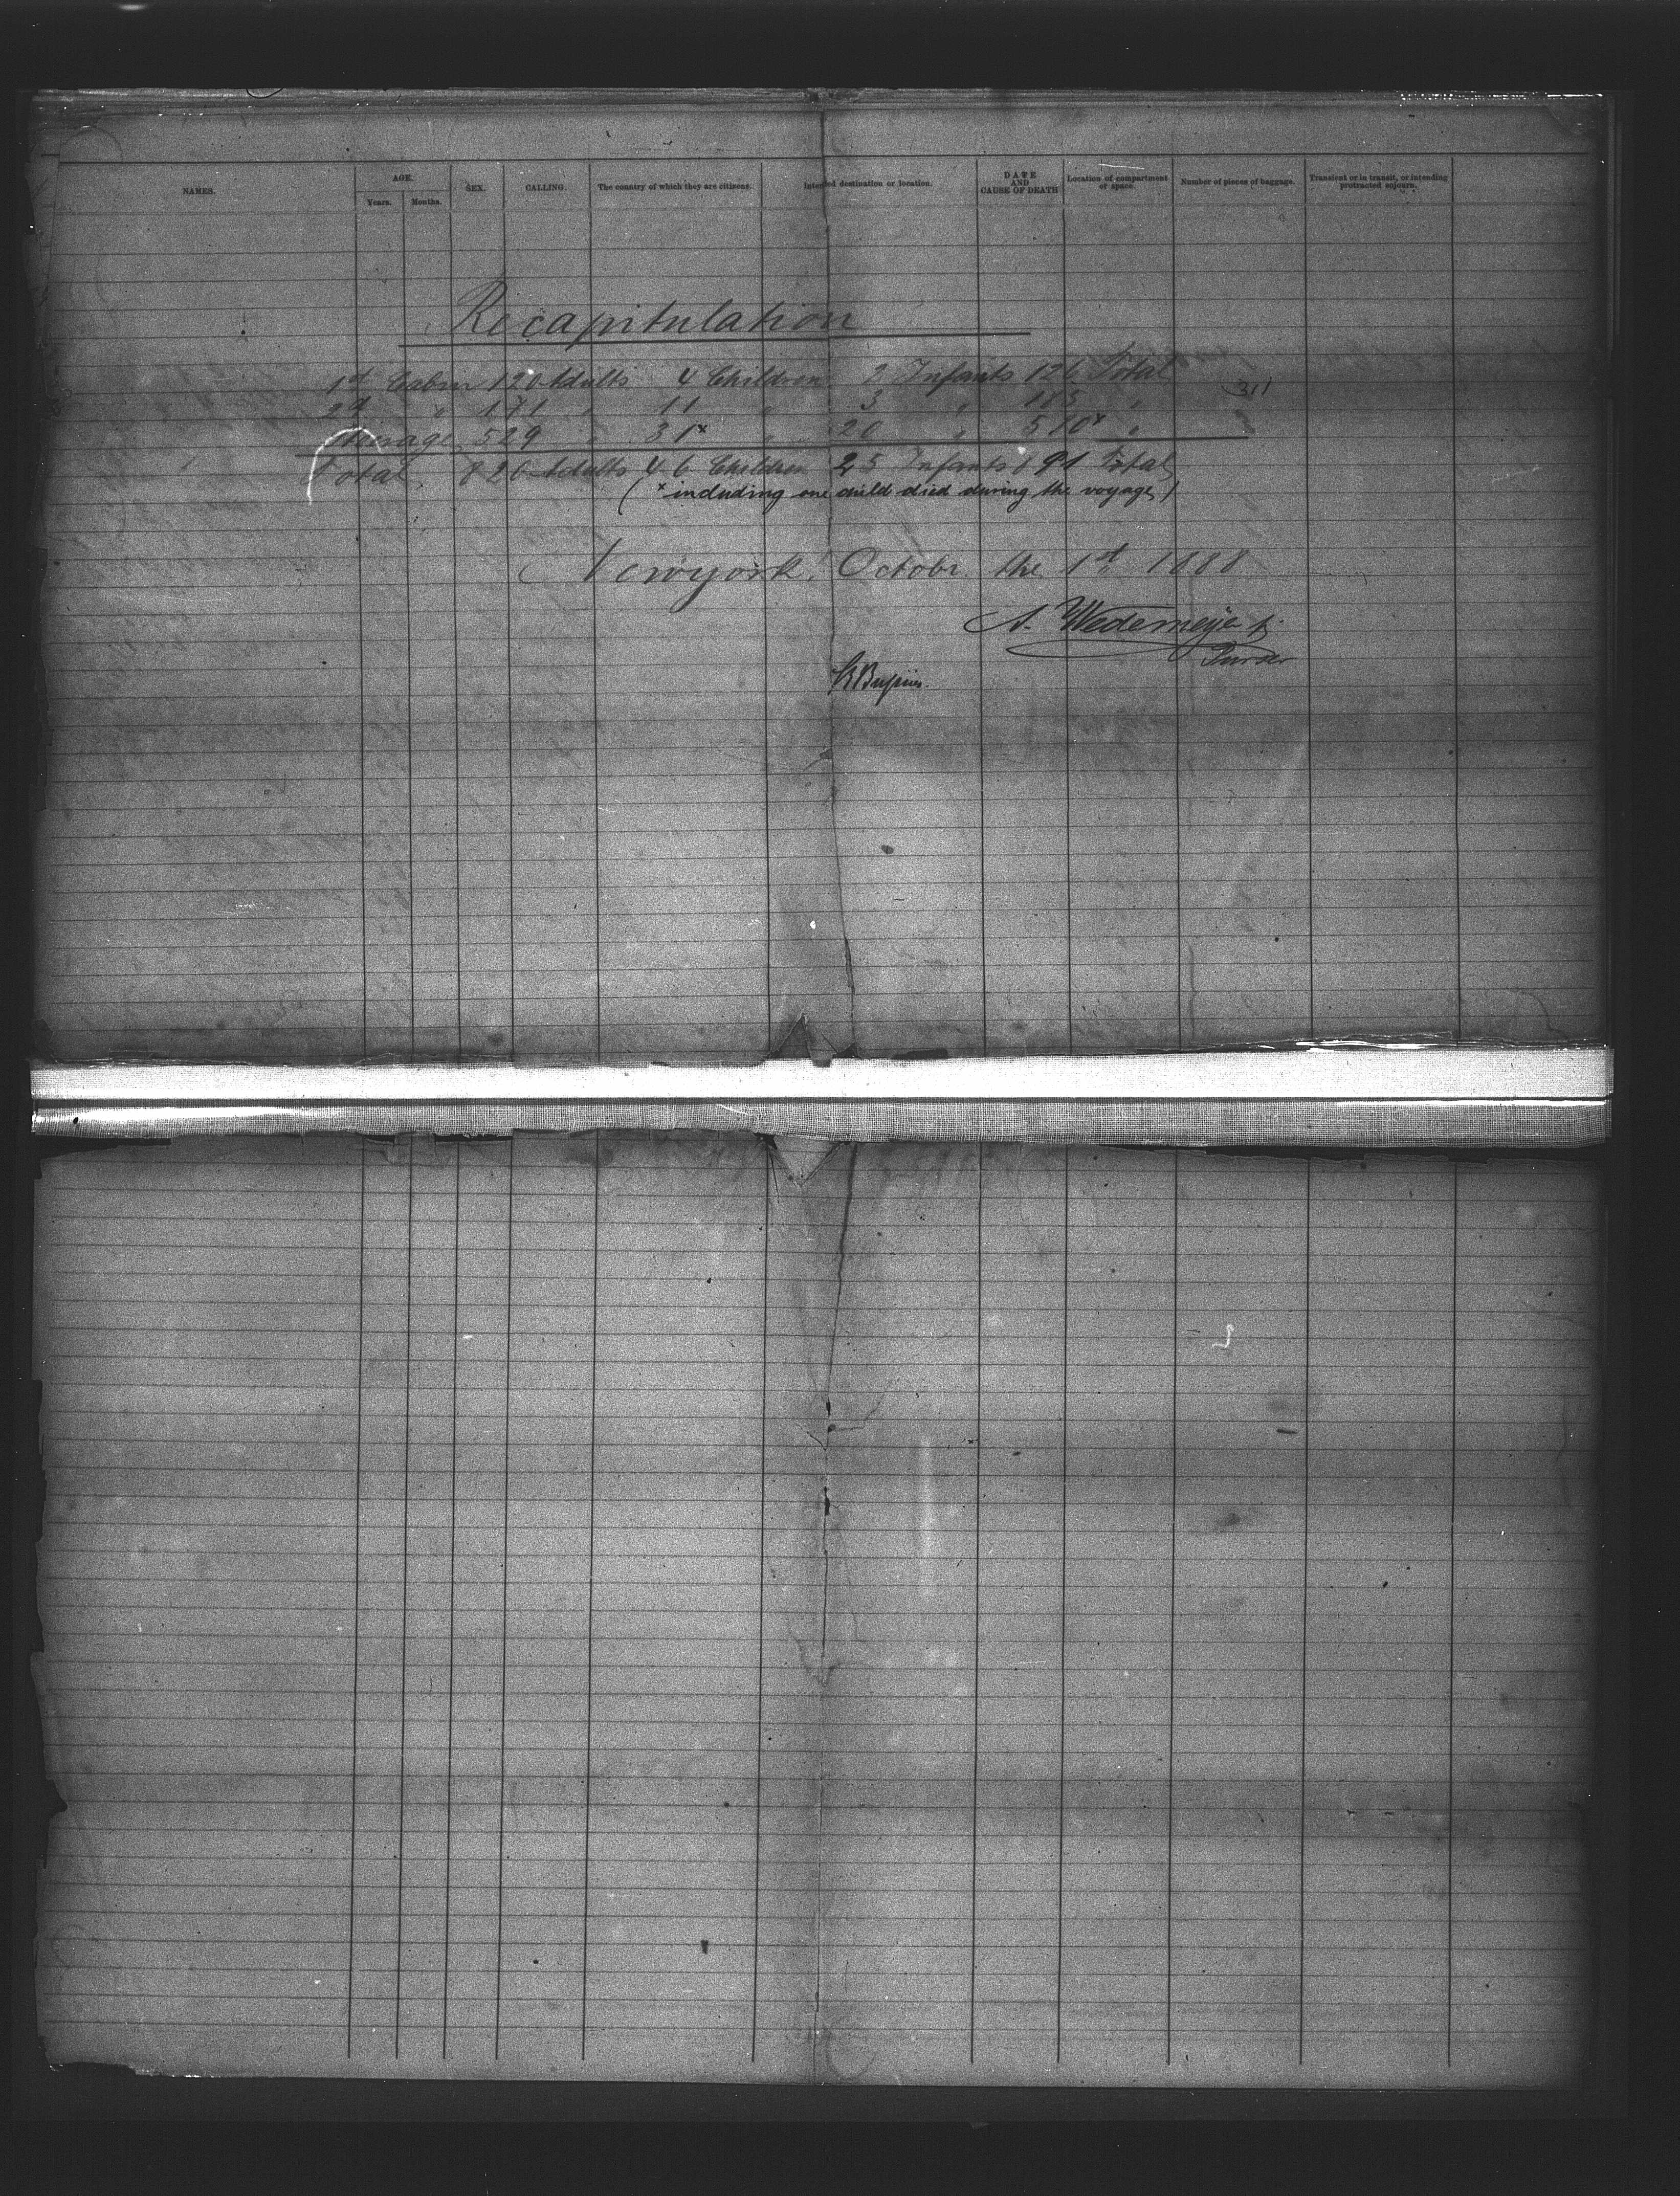 NAMES. AGE. SEX. CALLING. The country of which they are citizens. Intended destination or location. DATE AND CAUSE OF DEATH Location of compartment or space. Number of pieces of baggage. Transient or in transit, or intending protracted sojourn.
Years. Months.
Recapitulation
1st Cabin 120 Adults 4 Children 2 Infants 126 Total
311
2d " 171 " 11 " 3 " 185 "
Steerage 529 " 31x " 20 " 580x "
Total 820 Adults 46 Children 25 Infants 891 Total
(x including one child died during the voyage)
Newyork, Octobr. the 1st 1888
A. Wedemeyer
Purser